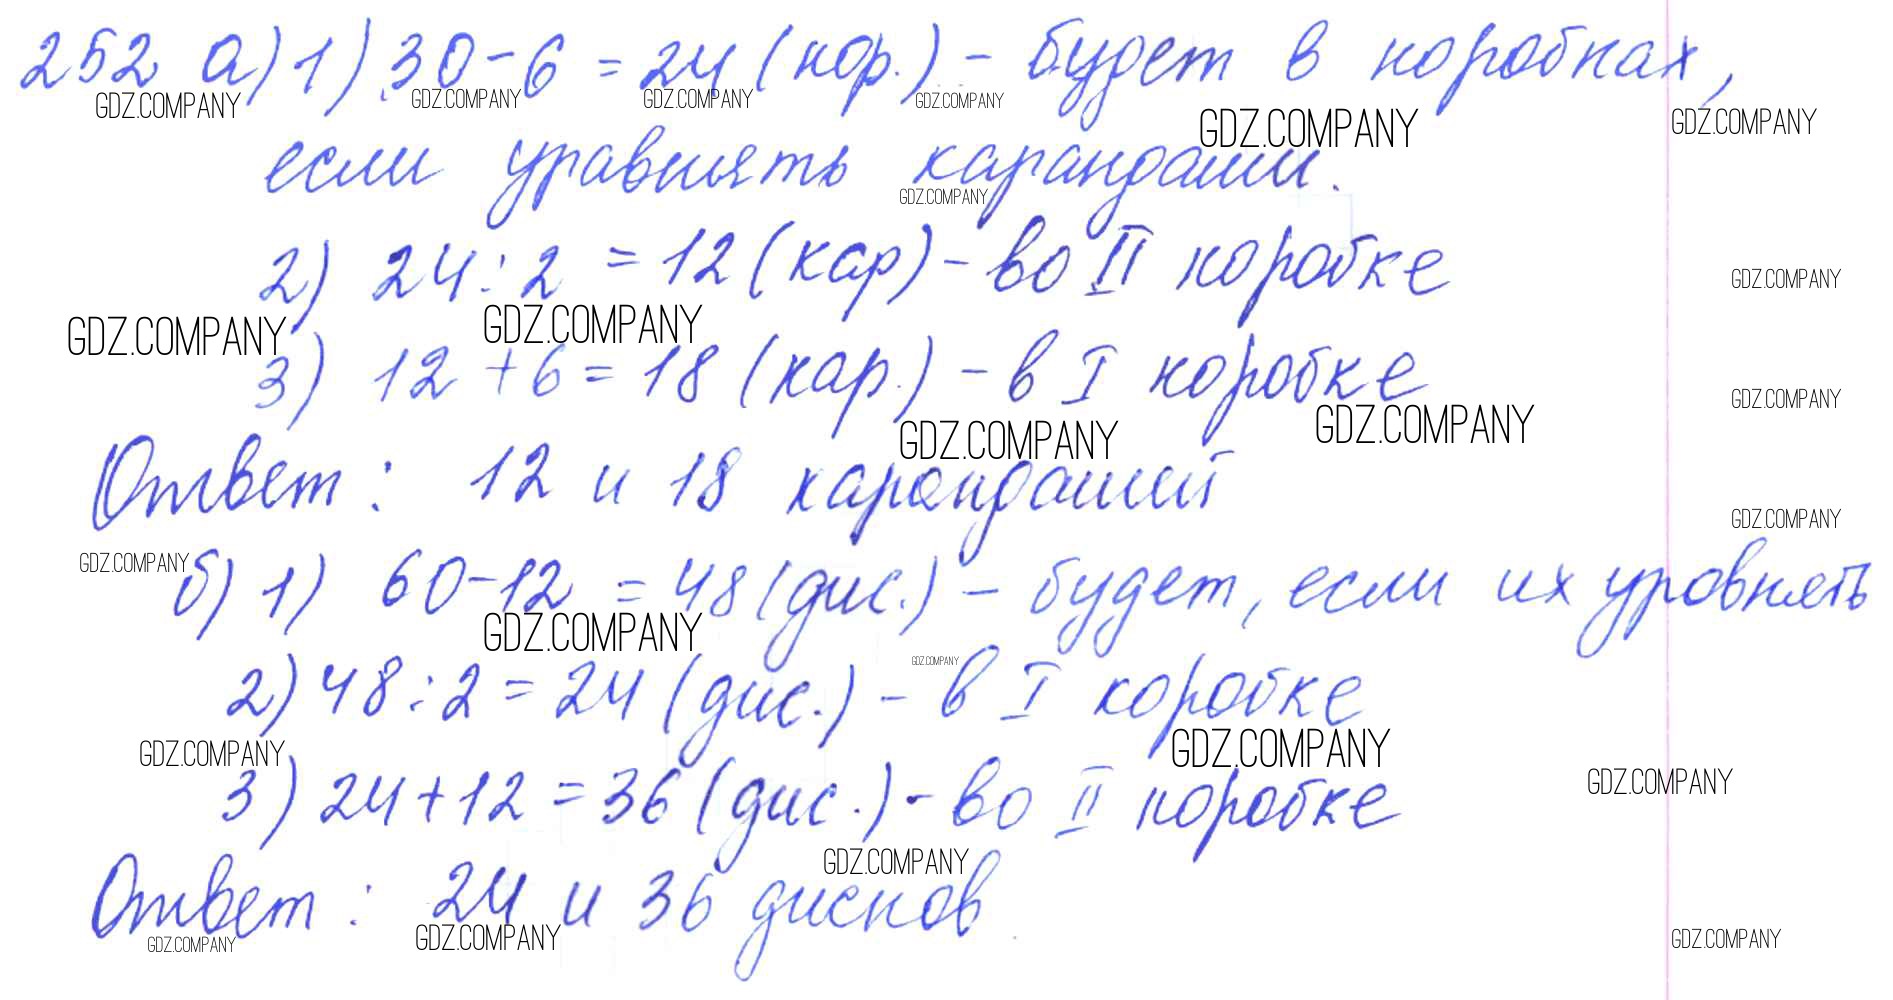 252 а) 1) 30-6 = 24 (кор.) - будет в коробках,
GDZ.COMPANY GDZ.COMPANY GDZ.COMPANY GDZ.COMPANY GDZ.COMPANY GDZ.COMPANY
если уравнять карандаши.
GDZ.COMPANY
2) 24 : 2 = 12 (кар) - во II коробке
GDZ.COMPANY
GDZ.COMPANY GDZ.COMPANY
3) 12 + 6 = 18 (кар.) - в I коробке
GDZ.COMPANY
GDZ.COMPANY GDZ.COMPANY
Ответ : 12 и 18 карандашей
GDZ.COMPANY
GDZ.COMPANY
б) 1) 60-12 = 48 (дис.) - будет, если их уровнять
GDZ.COMPANY GDZ.COMPANY
2) 48 : 2 = 24 (дис.) - в I коробке
GDZ.COMPANY GDZ.COMPANY GDZ.COMPANY
3) 24 + 12 = 36 (дис.) - во II коробке
GDZ.COMPANY
Ответ : 24 и 36 дисков
GDZ.COMPANY GDZ.COMPANY GDZ.COMPANY